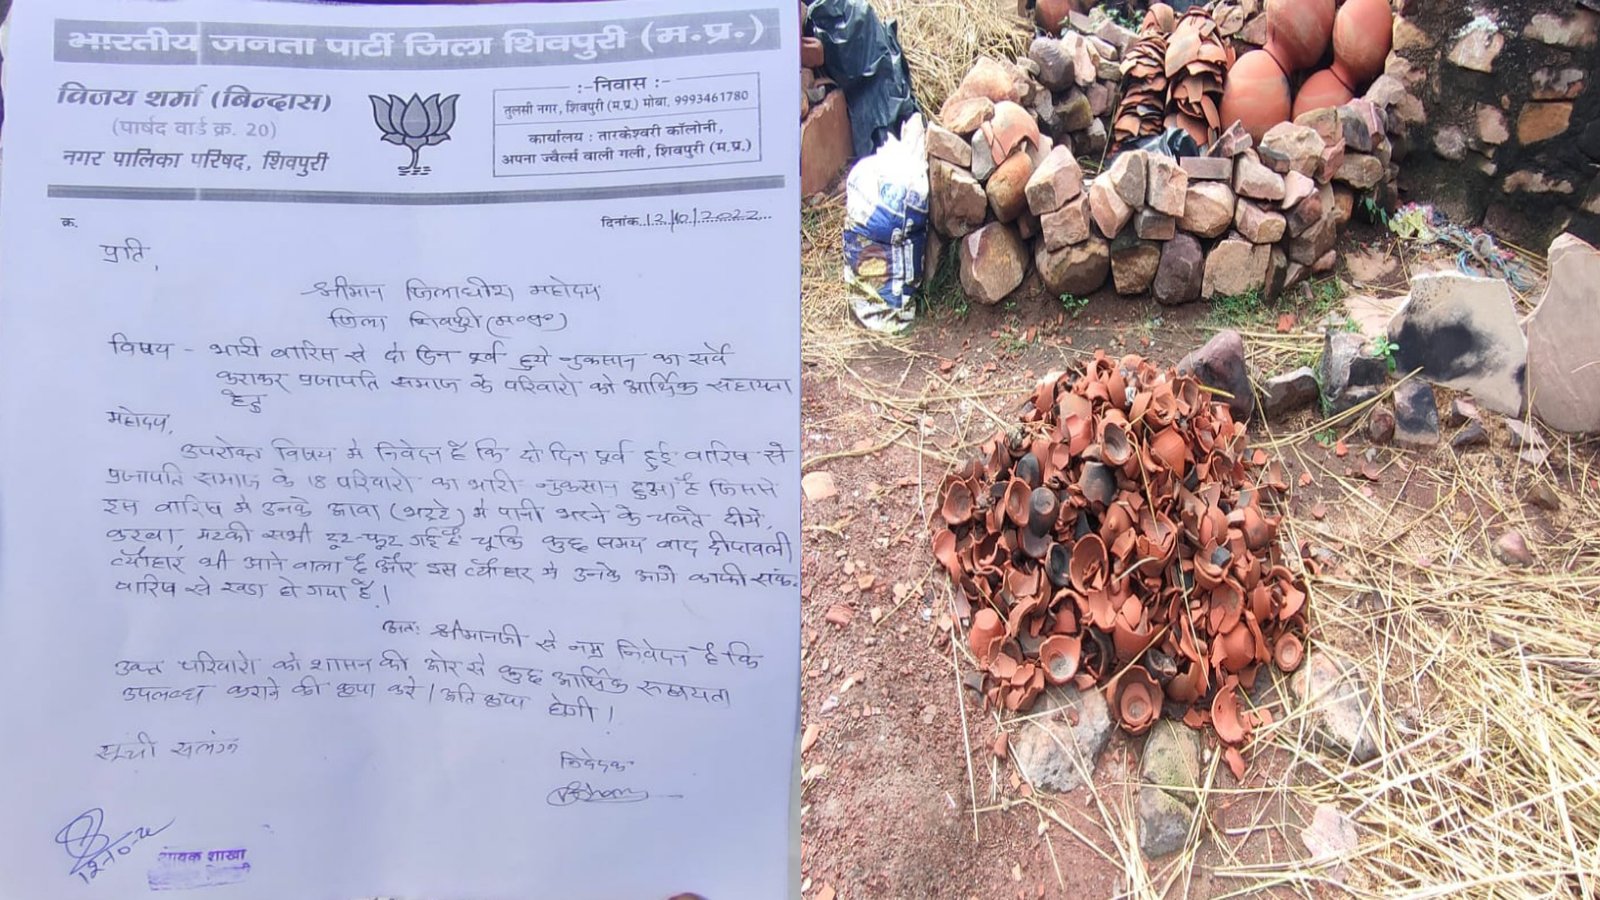 भारतीय जनता पार्टी जिला शिवपुरी (म.प्र.)
विजय शर्मा (बिन्दास)
(पार्षद वार्ड क्र. 20)
नगर पालिका परिषद, शिवपुरी
:-निवास :-
तुलसी नगर, शिवपुरी (म.प्र.) मोबा. 9993461780
कार्यालय : तारकेश्वरी कॉलोनी,
अपना ज्वैर्ल्स वाली गली, शिवपुरी (म.प्र.)
क्र.
दिनांक 12/10/2022
प्रति,
श्रीमान जिलाधीश महोदय
जिला शिवपुरी (म०प्र०)
विषय - भारी बारिस से दो दिन पूर्व हुये नुकसान का सर्वे
कराकर प्रजापति समाज के परिवारो को आर्थिक सहायता
हेतु
महोदय,
उपरोक्त विषय मे निवेदन है कि दो दिन पूर्व हुई बारिष से
प्रजापति समाज के 18 परिवारो का भारी नुकसान हुआ है जिसमे
इस बारिष मे उनके आवा (भट्टे) मे पानी भरने के चलते दीये,
करवा, मटकी सभी टूट-फूट गई है चूकि कुछ समय बाद दीपावली
त्यौहार भी आने वाला है और इस त्यौहार मे उनके आगे काफी संक.
बारिष से खडा हो गया है!
अतः श्रीमानजी से नम्र निवेदन है कि
उक्त परिवारो को शासन की ओर से कुछ आर्थिक सहायता
उपलब्ध कराने की कृपा करे। अति कृपा होगी!
सूची सलंग्न
निवेदक
आवक शाखा